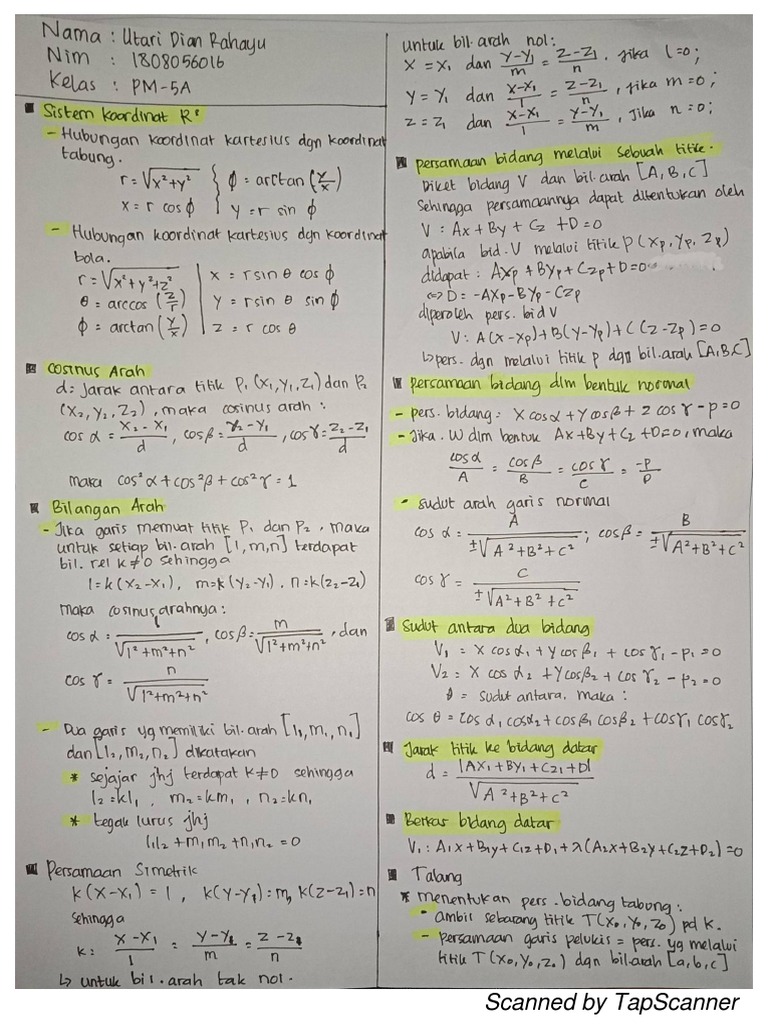 Nama : Utari Dian Rahayu
Nim : 1808056016
Kelas : PM-5A
Sistem koordinat R³
- Hubungan koordinat kartesius dgn koordinat
tabung.
r = √(x²+y²) { ϕ = arctan (y/x)
x = r cos ϕ | y = r sin ϕ
- Hubungan koordinat kartesius dgn koordinat
bola.
r = √(x²+y²+z²) | x = r sin θ cos ϕ
θ = arccos (z/r) | y = r sin θ sin ϕ
ϕ = arctan (y/x) | z = r cos θ
Cosinus Arah
d = Jarak antara titik P₁ (x₁,y₁,z₁) dan P₂
(x₂,y₂,z₂), maka cosinus arah :
cos α = (x₂-x₁)/d, cos β = (y₂-y₁)/d, cos γ = (z₂-z₁)/d
maka cos² α + cos² β + cos² γ = 1
Bilangan Arah
- Jika garis memuat titik P₁ dan P₂, maka
untuk setiap bil. arah [l,m,n] terdapat
bil. rel k≠0 sehingga
l = k(x₂-x₁), m=k(y₂-y₁), n=k(z₂-z₁)
maka cosinus arahnya :
cos α = l/√(l²+m²+n²), cos β = m/√(l²+m²+n²), dan
cos γ = n/√(l²+m²+n²)
- Dua garis yg memiliki bil. arah [l₁,m₁,n₁]
dan [l₂,m₂,n₂] dikatakan
* sejajar jhj terdapat k≠0 sehingga
l₂=kl₁, m₂=km₁, n₂=kn₁
* tegak lurus jhj
l₁l₂ + m₁m₂ + n₁n₂ = 0
Persamaan Simetrik
k(x-x₁) = l, k(y-y₁)=m, k(z-z₁)=n
sehingga
k = (x-x₁)/l = (y-y₁)/m = (z-z₁)/n
↳ untuk bil. arah tak nol.
untuk bil. arah nol :
x = x₁ dan (y-y₁)/m = (z-z₁)/n, jika l=0;
y = y₁ dan (x-x₁)/l = (z-z₁)/n, jika m=0;
z = z₁ dan (x-x₁)/l = (y-y₁)/m, Jika n=0;
persamaan bidang melalui sebuah titik.
Diket bidang V dan bil. arah [A, B, C]
Sehingga persamaannya dapat ditentukan oleh
V : Ax + By + Cz + D = 0
apabila bid. V melalui titik P (xp, yp, zp)
didapat : Axp + Byp + Czp + D = 0
⇔ D = -Axp - Byp - Czp
diperoleh pers. bid V
V : A(x-xp) + B(y-yp) + C(z-zp) = 0
↳ pers. dgn melalui titik p dgn bil. arah [A,B,C]
persamaan bidang dlm bentuk normal
- pers. bidang : x cos α + y cos β + z cos γ - p = 0
- Jika. W dlm bentuk Ax+By+Cz+D=0, maka
cos α/A = cos β/B = cos γ/C = -p/D
- sudut arah garis normal
cos α = A/±√(A²+B²+C²); cos β = B/±√(A²+B²+C²)
cos γ = C/±√(A²+B²+C²)
Sudut antara dua bidang
V₁ = x cos α₁ + y cos β₁ + cos γ₁ - p₁ = 0
V₂ = x cos α₂ + y cos β₂ + cos γ₂ - p₂ = 0
θ = sudut antara. maka :
cos θ = cos α₁ cos α₂ + cos β₁ cos β₂ + cos γ₁ cos γ₂
Jarak titik ke bidang datar
d = |Ax₁+By₁+Cz₁+D|/√(A²+B²+C²)
Berkas bidang datar
V₁ : A₁x + B₁y + C₁z + D₁ + λ(A₂x+B₂y+C₂z+D₂) = 0
Talang
* menentukan pers. bidang tabung :
- ambil sebarang titik T(x₀, y₀, z₀) pd k.
- persamaan garis pelukis = pers. yg melalui
titik T (x₀,y₀,z₀) dgn bil. arah [a,b,c]
Scanned by TapScanner